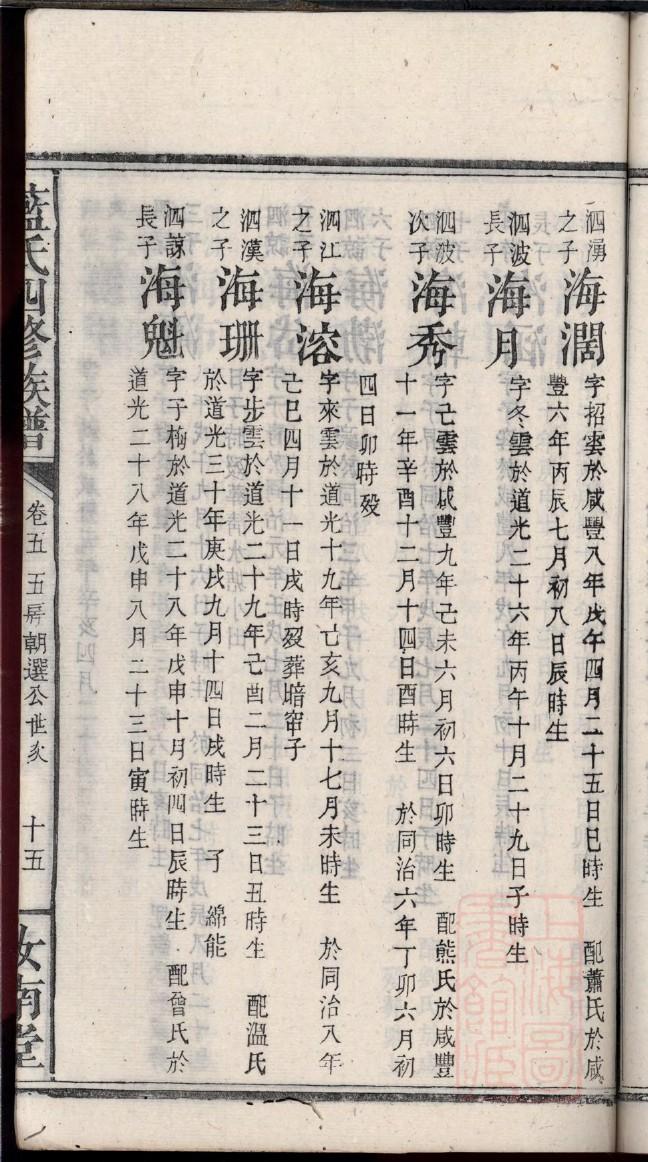 泗湧之子 海濶 字招雲於咸豐八年戊午四月二十五日巳時生 配蕭氏於咸
豐六年丙辰七月初八日辰時生
泗波長子 海月 字冬雲於道光二十六年丙午十月二十九日子時生
泗波次子 海秀 字亡雲於咸豐九年己未六月初六日卯時生 配熊氏於咸豐
十一年辛酉十二月十四日酉時生 於同治六年丁卯六月初
四日卯時殁
泗江之子 海溶 字來雲於道光十九年亡亥九月十七月未時生 於同治八年
亡巳四月十一日戌時殁葬塘窋子
泗漢之子 海珊 字步雲於道光二十九年己酉二月二十三日丑時生 配溫氏
於道光三十年庚戌九月十四日戌時生 子 綿能
泗諒長子 海魁 字子梅於道光二十八年戊申十月初四日辰時生 配曾氏於
道光二十八年戊申八月二十三日寅時生
藍氏四修族譜 卷五 五房朝選公世系 十五 汝南堂
上海圖書館藏